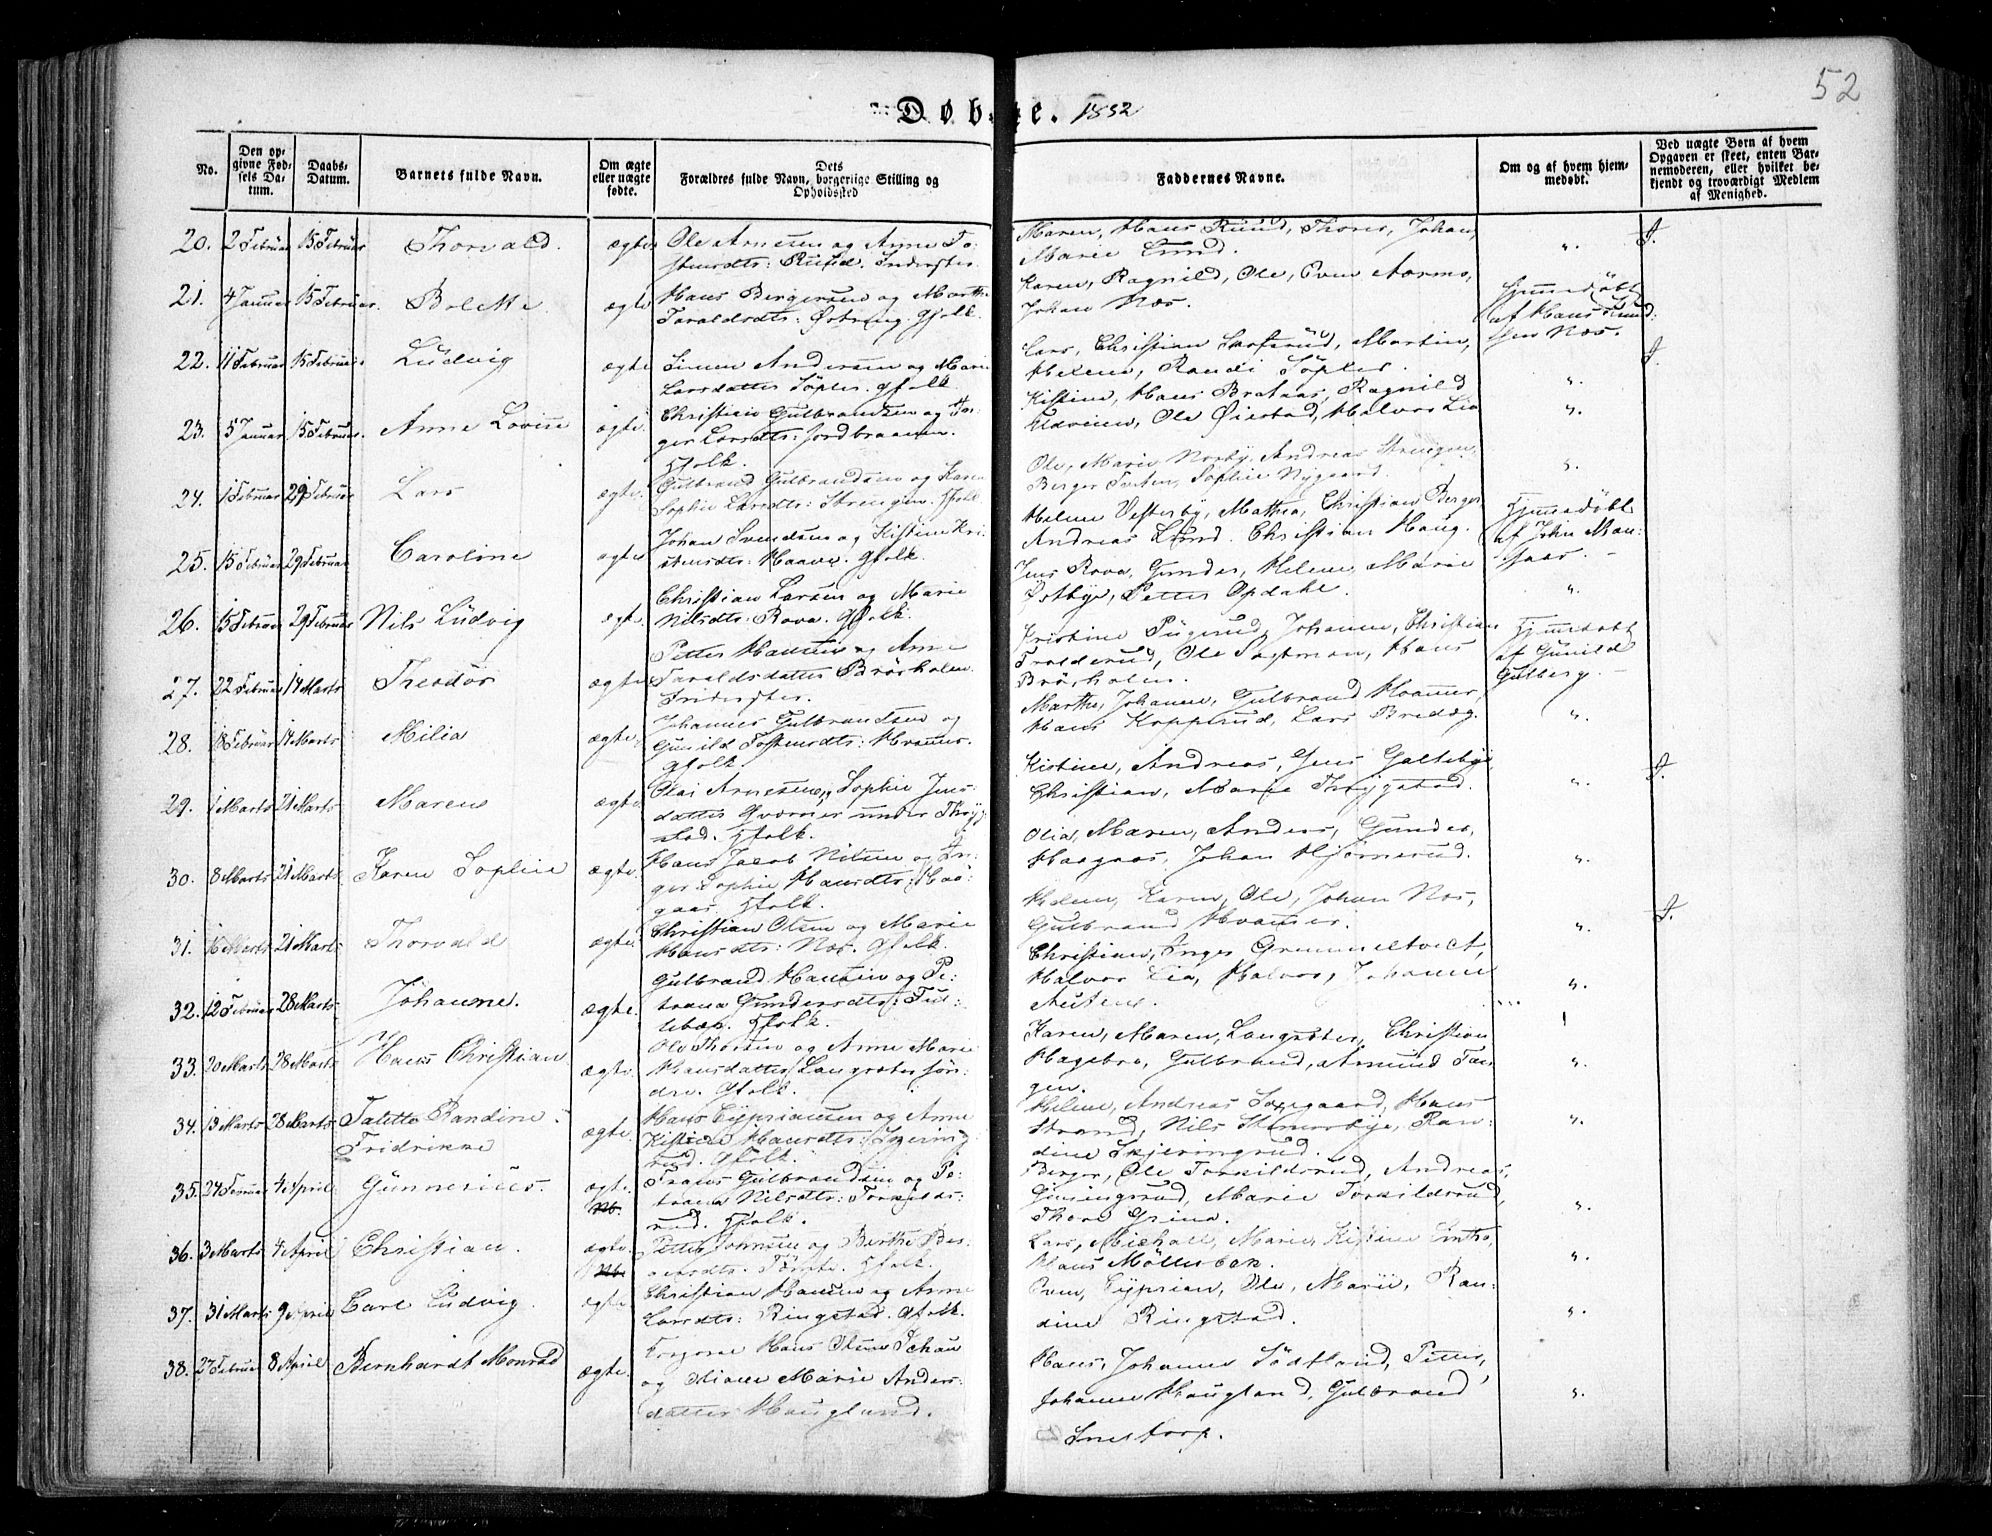 52
Døbte. 1852
No.
Den opgivne Fødsels Datum.
Daabs-Datum.
Barnets fulde Navn.
Om ægte eller uægte fødte.
Dets Forældres fulde Navn, borgerlige Stilling og Opholdssted
Faddernes Navne.
Om og af hvem hjemmedøbt.
Ved uægte Børn af hvem Opgaven er skeet, enten Barnemoderen, eller hvilket bekjendt og troværdigt Medlem af Menighed.
20. 2 Februar 15 Februar Thorvald. ægte
Ole Arnesen og Anne To-
stensdtr:
Maren, Hans Ruud, Thorer, Johan,
Marie Lund. ". J.
21. 4 Januar 15 Februar. Bolette. ægte
Hans Bergersen og Marthe
Taraldsdtr: Østeng. Gfolk.
Karen, Ragnild, Ole, Even Aarnes,
Johan Næs.
Hjemmedøbt
af Hans Knud-
sen Næs.
22. 11 Februar 15 Februar. Ludvig ægte
Simen Andersen og Marie
Larsdatter Søpler. Gfolk.
Lars, Christian Skoferud, Martin,
Helene, Randi Søpler. ". J.
23. 5 Januar 15 Februar. Anne Lovise ægte.
Christian Gulbrandsen og In-
ger Larsdtr: Jordbraaten.
Hfolk.
Kistine, Hans Brataas, Ragnild
Udveien, Ole Øiestad, Halvor Lia ".
24. 1 Februar 29 Februar Lars ægte.
Gulbrand Gulbrandsen og Karen
Sophie Larsdtr: Strengen. Hfolk
Ole, Marie Norby, Andreas Strengen,
Berger Tveten, Sophie Nygaard. ".
25. 15 Februar 29 Februar Caroline ægte.
Johan Svendsen og Kistine Kri-
stensdtr: Haave. Gfolk.
Helene Vesterby, Mathea, Christian Berger
Andreas Lund. Christian Haug.
Hjemmedøbt
af John Man-
saas.
26. 15 Februar 29 Februar Nils Ludvig ægte.
Christian Larsen og Marie
Nilsdtr: Rova. Gfolk.
Jens Rova, Gunder, Helene, Marie
Østbye, Petter Opdahl. ".
27. 22 Februar 14 Marts Theodor ægte
Petter Hansen og Anne
Taraldsdatter Brørholen.
Inderster.
Kristine Pugerud, Johanne, Christian
Trolderud, Ole Sagtman, Hans
Brørholen.
Hjemmedøbt
af Gunild
Gulberg.
28. 18 Februar 14 Marts Milia ægte.
Johannes Gulbrandsen og
Gunild Tostensdtr: Hvamer.
Gfolk.
Marthe, Johanne, Gulbrand Hvamer,
Hans Kopperud, Lars Bredeg. ".
29. 1 Marts 21 Marts Maren ægte.
Olai Arnesen, Sophie Jens-
datter Qværner under Thryg-
stad. Hfolk.
Kistine, Andreas, Jens Galtebye,
Christian, Marie Thrygstad. ". J.
30. 8 Marts 21 Marts Karen Sophie ægte.
Hans Jacob Nilsen og In-
ger Sophie Hansdtr: Haa-
gaas. Hfolk.
Olia, Maren, Anders, Gunder,
Haagaas, Johan Hjørnerud. ".
31. 16 Marts 21 Marts Thorvald ægte.
Christian Olsen og Marie
Hansdtr: Næs. Gfolk.
Helene, Karen, Ole, Johan Næs,
Gulbrand Hvamer. ". J.
32. 12 Februar 28 Marts Johanne. ægte.
Gulbrand Hansen og Pe-
trana Gundersdtr: Ful-
Hfolk.
Christian, Inger Grimmeltvedt,
Halvor Lia, Halvor, Johanne
".
33. 20 Marts 28 Marts Hans Christian ægte.
Ole Thorsen og Anne Marie
Hansdatter Langseter søn-
dre. Gfolk.
Karen, Maren, Langseter, Christian
Hagebro, Gulbrand, Asmund Tan-
gen. ".
34. 13 Marts 28 Marts Taletta Randine
Fridrikke ægte.
Hans Cyprianson og Anne
Kistine Hansdtr: Skjering-
rud. Gfolk.
Helene, Andreas Saxegaard, Hans
Strand, Nils Stomerbye, Ran-
dine Skjeringrud. ".
35. 24 Februar 4 April. Gunnerius. ægte.
Frans Gulbrandsen og Pe-
trana Nilsdtr: Torkilds-
rud. Hfolk.
Berger, Ole Torkildsrud, Andreas,
Marie Torkildsrud,
Thore Grina. ".
36. 3 Marts 4 April Christian. ægte.
Petter Johnsen og Berthe
Hfolk.
Lars, Michael, Marie, Kistine
Klaus Møllerbak. ".
37. 31 Marts 9 April Carl Ludvig. ægte
Christian Hansen og Anne
Larsdtr: Ringstad. Gfolk.
Even, Cyprian, Ole, Marie, Ran-
dine Ringstad. ".
38. 27 Februar 8 April Bernhardt Monrad ægte.
Hans Olsen Schau
og Oliane Marie Anders-
datter Haugland.
Hans, Johanne Sødtland, Petter,
Johanne Haugland, Gulbrand ".
Snestorp.